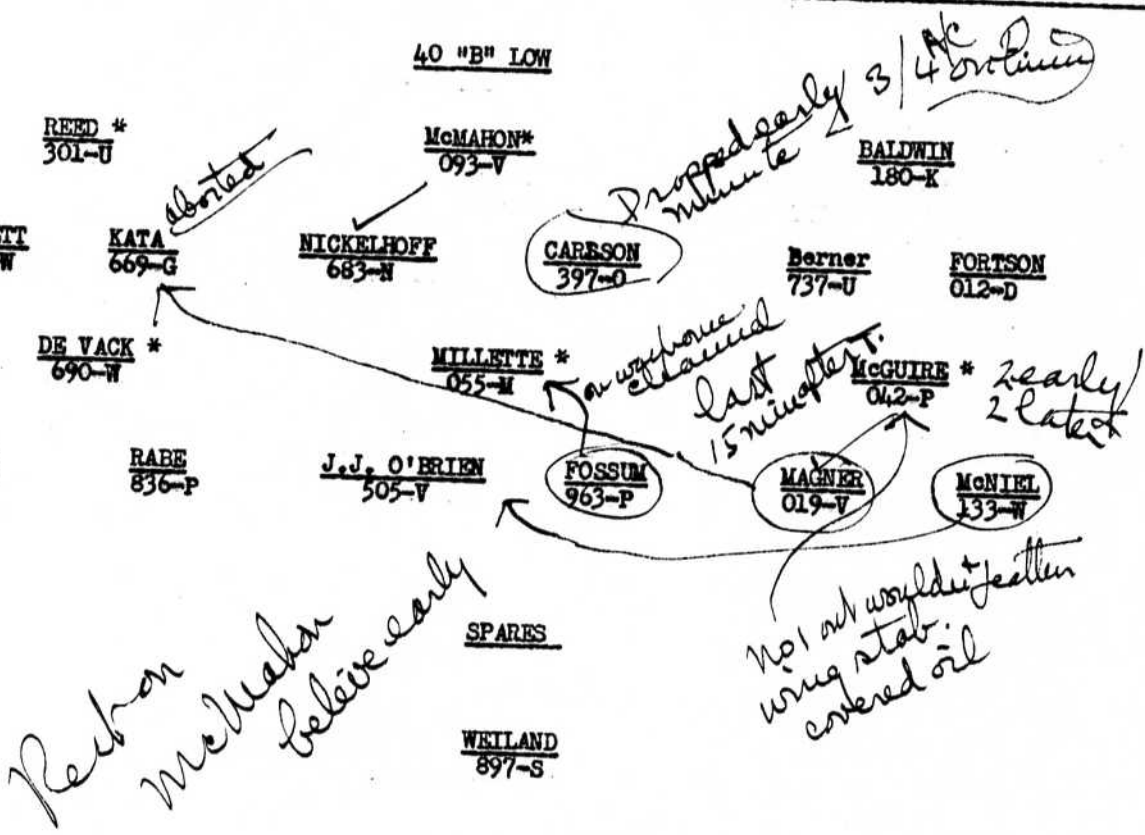 40 "B" LOW
A/C
3/4 on
REED *
301-U
aborted
McMAHON*
093-V
Dropped early
minute
BALDWIN
180-K
TT
W
KATA
669-G
NICKELHOFF
683-N
CARLSON
397-O
Berner
737-U
FORTSON
012-D
DE VACK *
690-W
MILLETTE *
055-M
on
cleaned
last
15 min after T.
McGUIRE *
042-P
2 early
2 late
RABE
836-P
J.J. O'BRIEN
505-V
FOSSUM
963-P
MAGNER
019-V
McNIEL
133-W
No 1 out wouldn't feather
wing stab.
covered oil
SPARES
WEILAND
897-S
Rest on
McMahon
beleive early